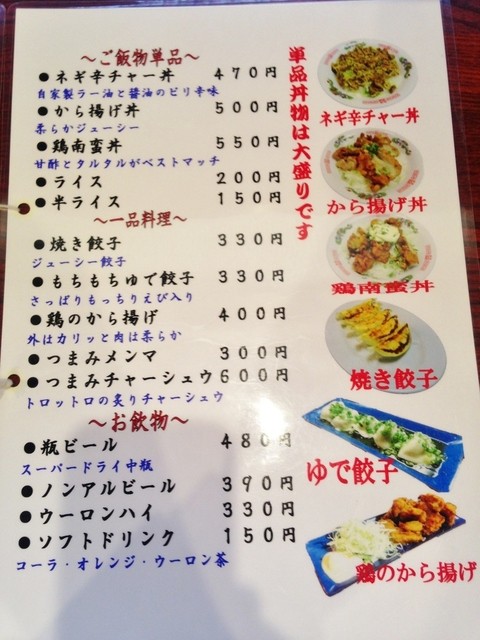 ～ご飯物単品～
●ネギ辛チャー丼 470円
自家製ラー油と醤油のピリ辛味
●から揚げ丼 500円
柔らかジューシー
●鶏南蛮丼 550円
甘酢とタルタルがベストマッチ
●ライス 200円
●半ライス 150円
～一品料理～
●焼き餃子 330円
ジューシー餃子
●もちもちゆで餃子 330円
さっぱりもっちりえび入り
●鶏のから揚げ 400円
外はカリッと肉は柔らか
●つまみメンマ 300円
●つまみチャーシュウ 600円
トロットロの炙りチャーシュウ
～お飲物～
●瓶ビール 480円
スーパードライ中瓶
●ノンアルビール 390円
●ウーロンハイ 330円
●ソフトドリンク 150円
コーラ・オレンジ・ウーロン茶
単品丼物は大盛りです
ネギ辛チャー丼
から揚げ丼
鶏南蛮丼
焼き餃子
ゆで餃子
鶏のから揚げ